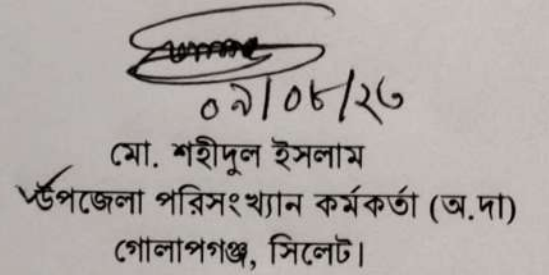 ০৯/০৮/২৩
মো. শহীদুল ইসলাম
উপজেলা পরিসংখ্যান কর্মকর্তা (অ.দা)
গোলাপগঞ্জ, সিলেট।